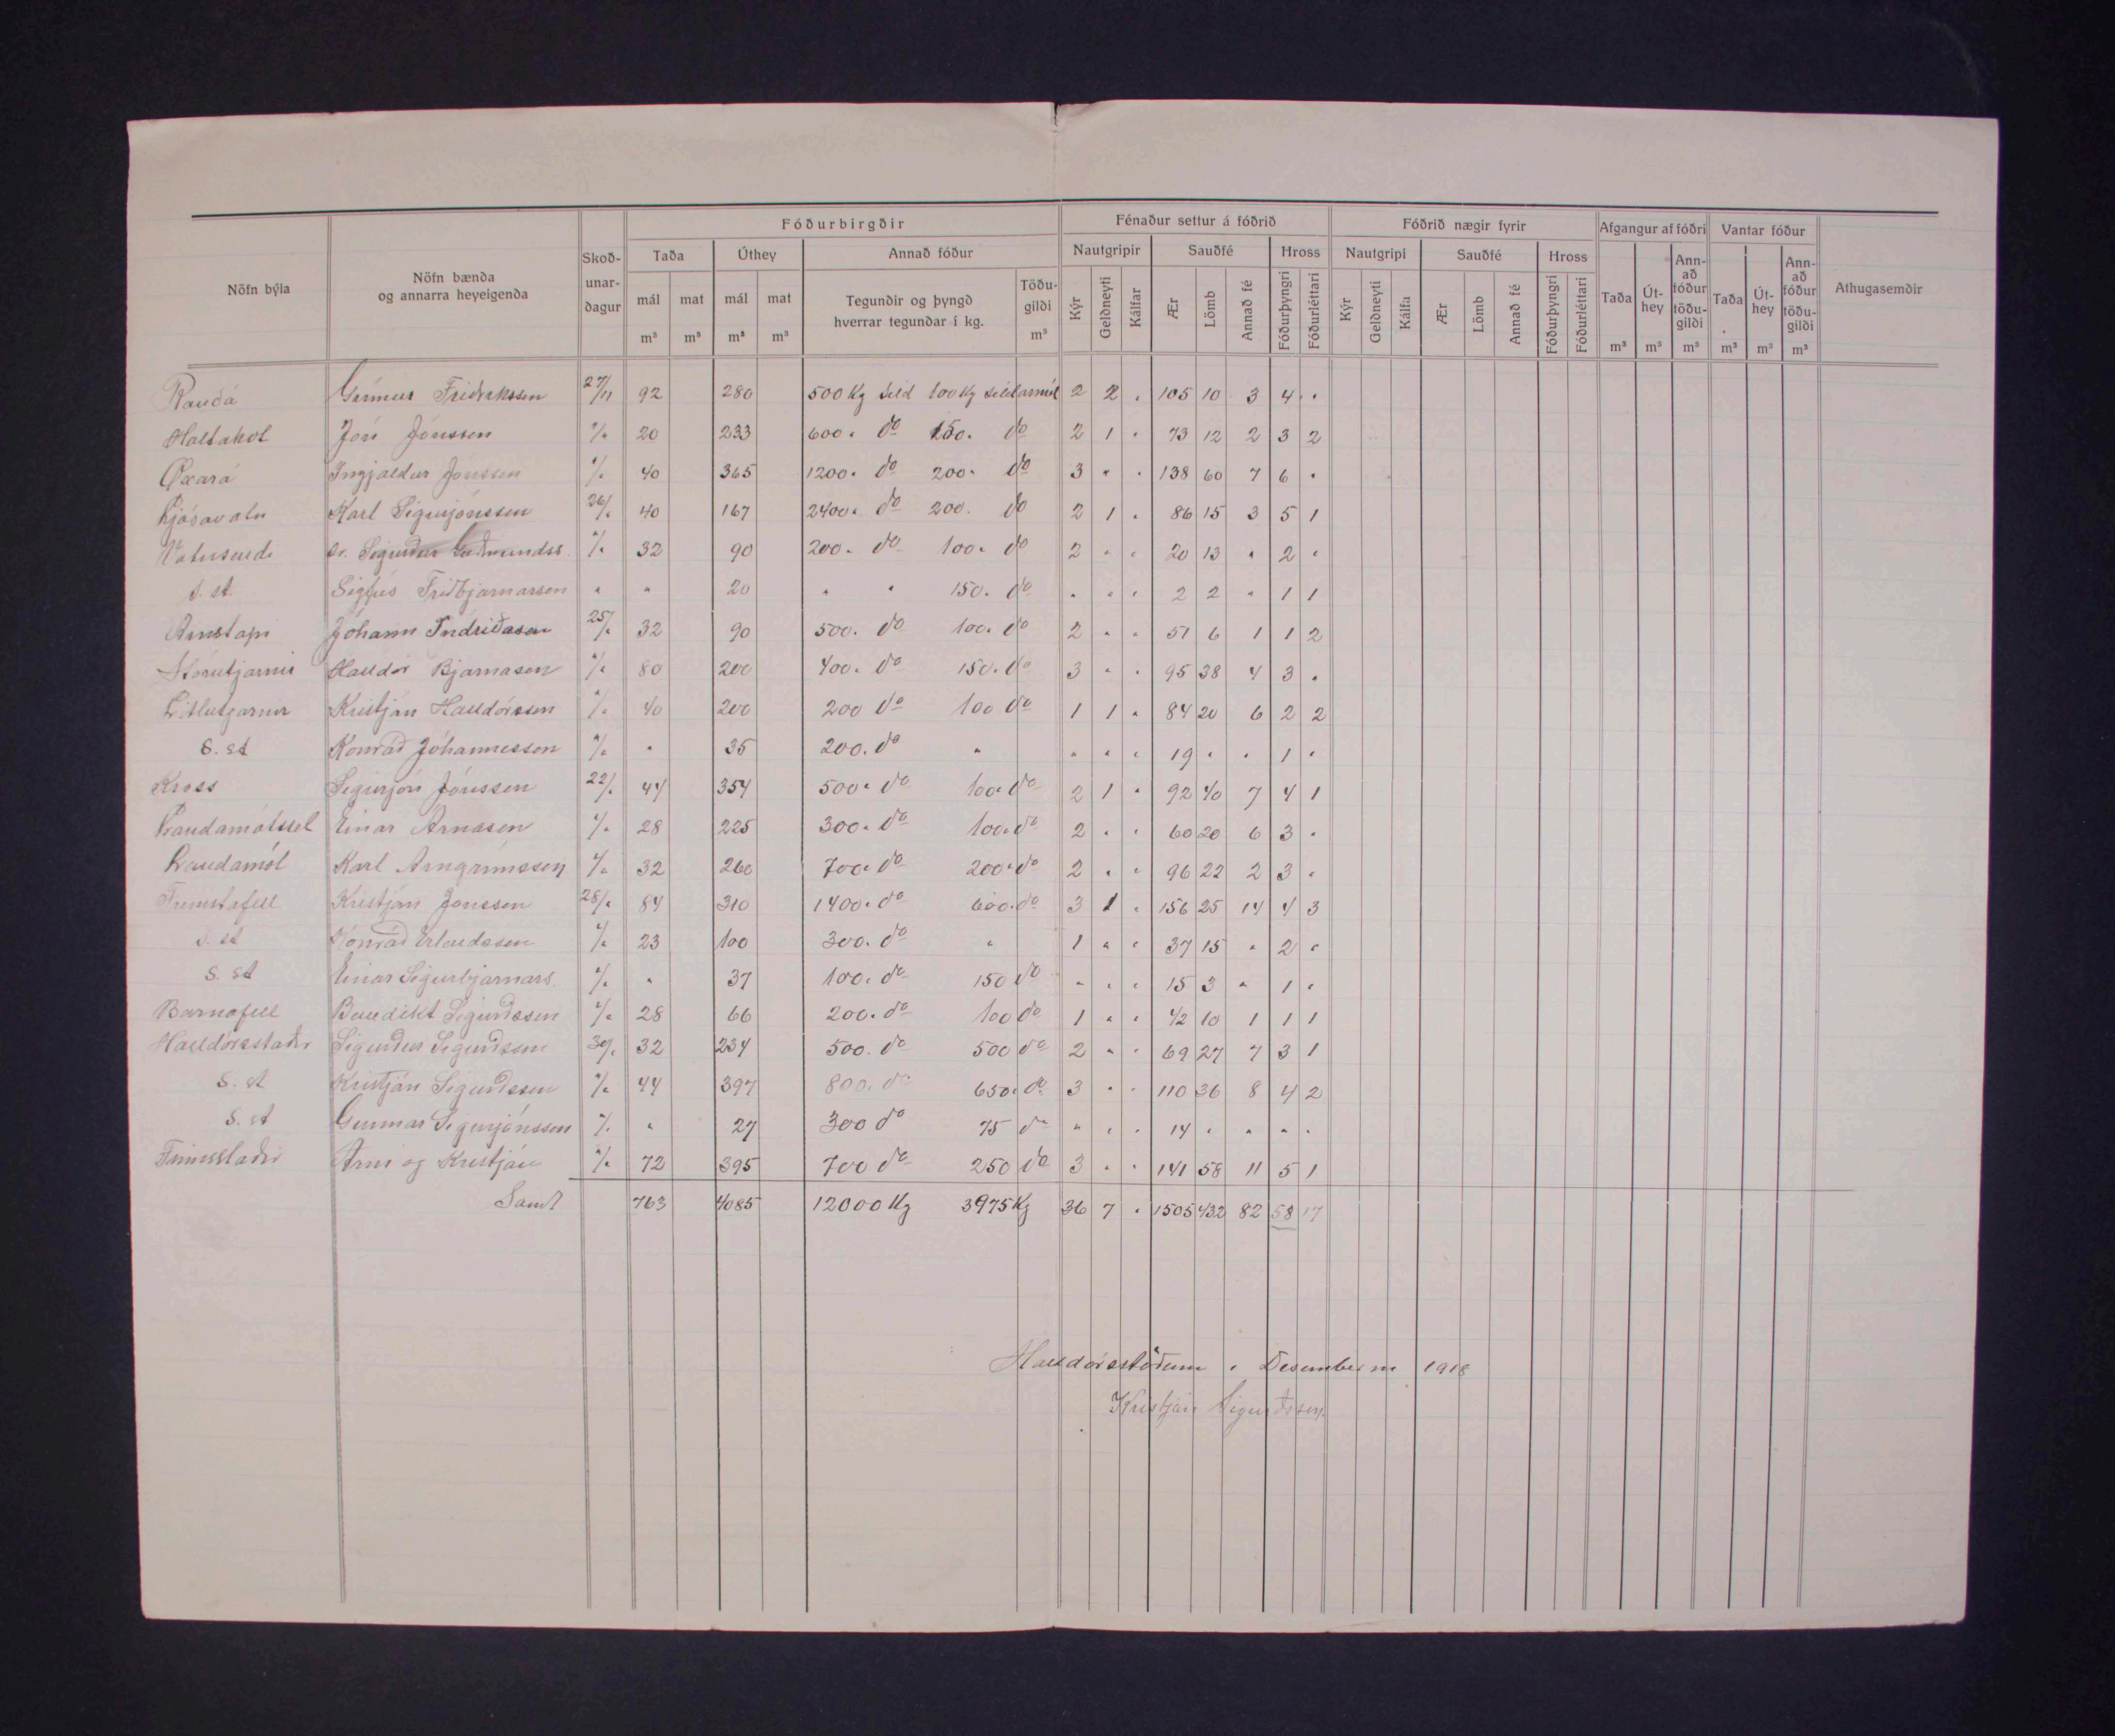 Fóðurbirgðir Fénaður settur á fóðrið Fóðrið nægir fyrir Afgangur af fóðri Vantar fóður
Nöfn býla Nöfn bænda og annarra heyeigenda Skoðunardagur Taða Úthey Annað fóður Nautgripir Sauðfé Hross Nautgripi Sauðfé Hross Taða Úthey Annað fóður töðugildi Taða Úthey Annað fóður töðugildi Athugasemdir
mál m³ mat m³ mál m³ mat m³ Tegundir og þyngd hverrar tegundar í kg. Töðugildi m³ Kýr Geldneyti Kálfar Ær Lömb Annað fé Fóðurþyngri Fóðurléttari Kýr Geldneyti Kálfa Ær Lömb Annað fé Fóðurþyngri Fóðurléttari m³ m³ m³ m³ m³ m³
Rauðá Grímur Friðriksson 27/11 92 280 500 Kg síld 100 Kg síldarmél 2 2 " 105 10 3 4 "
Holtakot Jón Jónsson "/" 20 233 600 " do 150 " do 2 1 " 73 12 2 3 2
Öxará Ingjaldur Jónsson "/" 40 365 1200 " do 200 " do 3 " " 138 60 7 6 "
Ljósavatn Karl Sigurjónsson 26/" 40 167 2400 " do 200 " do 2 1 " 86 15 3 5 1
Vatnsendi sr. Sigurður Guðmundss. "/" 32 90 200 " do 100 " do 2 " " 20 13 " 2 "
s. st. Sigfús Friðbjarnarson " " 20 " " 150 " do " " " 2 2 " 1 1
Arnstapi Jóhann Indriðason 25/" 32 90 500 " do 100 " do 2 " " 51 6 1 1 2
Stórutjarnir Halldór Bjarnason "/" 80 200 400 " do 150 " do 3 " " 95 38 4 3 "
Litlutjarnir Kristján Halldórsson "/" 40 200 200 do 100 do 1 1 " 84 20 6 2 2
S. st Konráð Jóhannesson "/" " 35 200 " do " " " " 19 " " 1 "
Kross Sigurjón Jónsson 22/" 44 354 500 " do 100 " do 2 1 " 92 40 7 4 1
Landamótssel Einar Árnason "/" 28 225 300 " do 100 " do 2 " " 60 20 6 3 "
Landamót Karl Arngrímsson "/" 32 260 700 " do 200 " do 2 " " 96 22 2 3 "
Fremstafell Kristján Jónsson 28/" 84 310 1400 " do 600 " do 3 1 " 156 25 14 4 3
S. st Konráð Erlendsson "/" 23 100 300 " do " 1 " " 37 15 " 2 "
S. st Einar Sigurbjarnars. "/" " 37 100 " do 150 do " " " 15 3 " 1 "
Barnafell Benedikt Sigurðsson "/" 28 66 200 " do 100 do 1 " " 42 10 1 1 1
Halldórsstaðir Sigurður Sigurðsson 30/" 32 234 500 " do 500 do 2 " " 69 27 7 3 1
S. st Kristján Sigurðsson "/" 44 397 800 " do 650 " do 3 " " 110 36 8 4 2
S. st Gunnar Sigurjónsson "/" " 27 300 do 75 do " " " 14 " " " "
Finnsstaðir Árni og Kristján "/" 72 395 700 do 250 do 3 " " 141 58 11 5 1
Samt 763 4085 12000 Kg 3975 Kg 36 7 " 1505 432 82 58 17
Halldórsstöðum í Desember m 1918
Kristján Sigurðsson